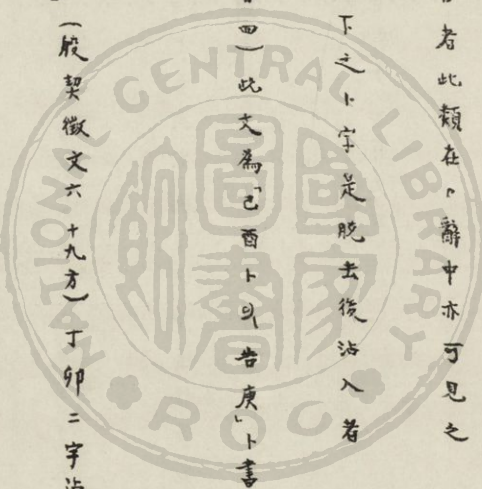 者此類在卜辭中亦可見之
下之卜字是脫去後沾入者
四）此文為「己酉卜 告庚」卜書
（殷契徵文六十九方）丁卯二字沾
NATIONAL CENTRAL LIBRARY
ROC
國家圖書館